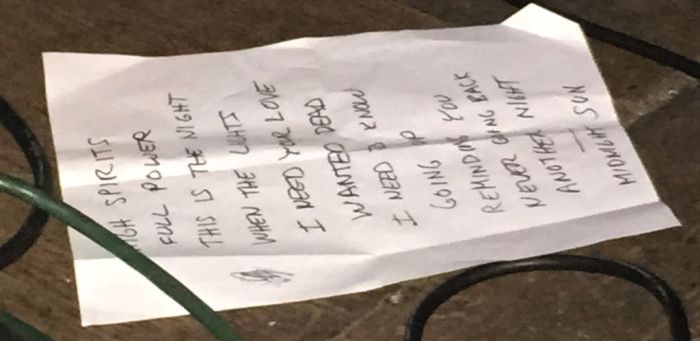 HIGH SPIRITS
FULL POWER
THIS IS THE NIGHT
WHEN THE LIGHTS
I NEED YOUR LOVE
WANTED DEAD
I NEED 2 KNOW
GOING UP
REMINDING YOU
NEVER GOING BACK
ANOTHER NIGHT
—
MIDNIGHT SUN